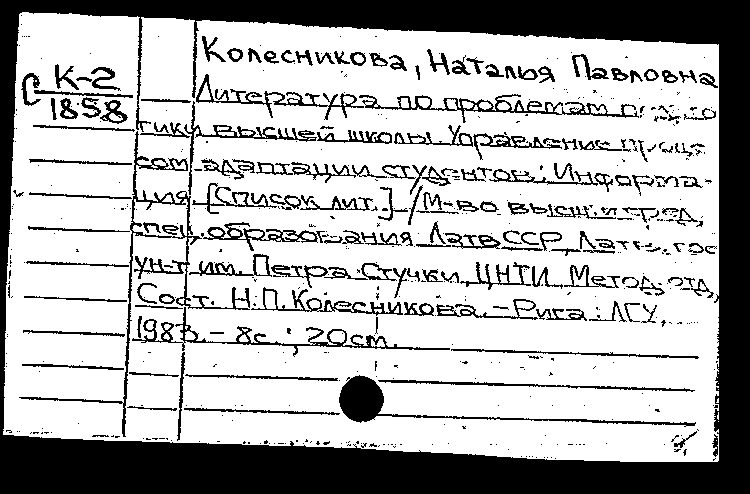 Колесникова, Наталья Павловна
С К-2
1858
Литература по проблемам
тики высшей школы. Управление проце
сом адаптации студентов: Информа-
ция. [Список лит.] / М-во высш. и сред.
спец. образования ЛатвССР, Латв. гос
ун-т им. Петра Стучки, ЦНТИ. Метод. отд.,
Сост. Н.П. Колесникова. - Рига: ЛГУ,
1983. - 8с.; 20см.